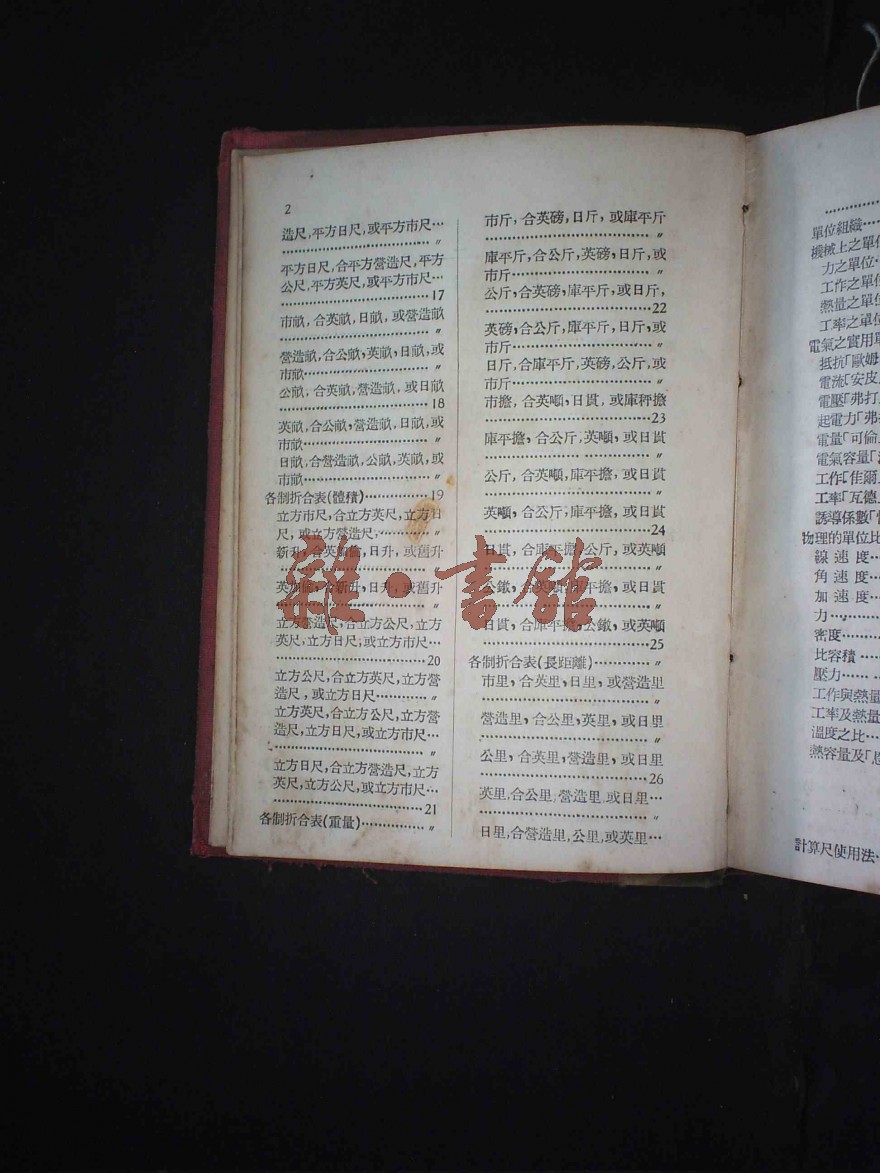 2
造尺,平方日尺,或平方市尺…
……………………〃
平方日尺,合平方營造尺,平方
公尺,平方英尺,或平方市尺…
……………………17
市畝,合英畝,日畝,或營造畝
……………………〃
營造畝,合公畝,英畝,日畝,或
市畝…………………〃
公畝,合英畝,營造畝,或日畝
……………………18
英畝,合公畝,營造畝,日畝,或
市畝…………………〃
日畝,合營造畝,公畝,英畝,或
市畝…………………〃
各制折合表(體積)…………19
立方市尺,合立方英尺,立方日
尺,或立方營造尺…………〃
新升,合英 日升,或舊升
英 合新升,日升,或舊升
立方營造尺,合立方公尺,立方
英尺,立方日尺,或立方市尺…
……………………20
立方公尺,合立方英尺,立方營
造尺,或立方日尺…………〃
立方英尺,合立方公尺,立方營
造尺,立方日尺,或立方市尺…
……………………〃
立方日尺,合立方營造尺,立方
英尺,立方公尺,或立方市尺…
……………………21
各制折合表(重量)…………〃
市斤,合英磅,日斤,或庫平斤
……………………〃
庫平斤,合公斤,英磅,日斤,或
市斤…………………〃
公斤,合英磅,庫平斤,或日斤,
……………………22
英磅,合公斤,庫平斤,日斤,或
市斤…………………〃
日斤,合庫平斤,英磅,公斤,或
市斤…………………〃
市擔,合英噸,日貫,或庫秤擔
……………………23
庫平擔,合公斤,英噸,或日貫
……………………〃
公斤,合英噸,庫平擔,或日貫
……………………〃
英噸,合公斤,庫平擔,或日貫
……………………24
日貫,合庫平擔,公斤,或英噸
……………………〃
公鐓,合英噸,庫平擔,或日貫
……………………〃
日貫,合庫平擔,公鐓,或英噸
……………………25
各制折合表(長距離)…………〃
市里,合英里,日里,或營造里
……………………〃
營造里,合公里,英里,或日里
……………………〃
公里,合英里,營造里,或日里
……………………26
英里,合公里,營造里,或日里…
……………………〃
日里,合營造里,公里,或英里…
單位組織……
機械上之單位
力之單位…
工作之單位
熱量之單位
工率之單位
電氣之實用單
抵抗「歐姆
電流「安皮
電壓「弗打
起電力「弗
電量「可倫
電氣容量「
工作「佳爾
工率「瓦德
誘導係數「
物理的單位比
線速度…
角速度…
加速度…
力………
密度……
比容積……
壓力……
工作與熱量
工率及熱量
溫度之比…
熱容量及「
計算尺使用法…
雜·書館